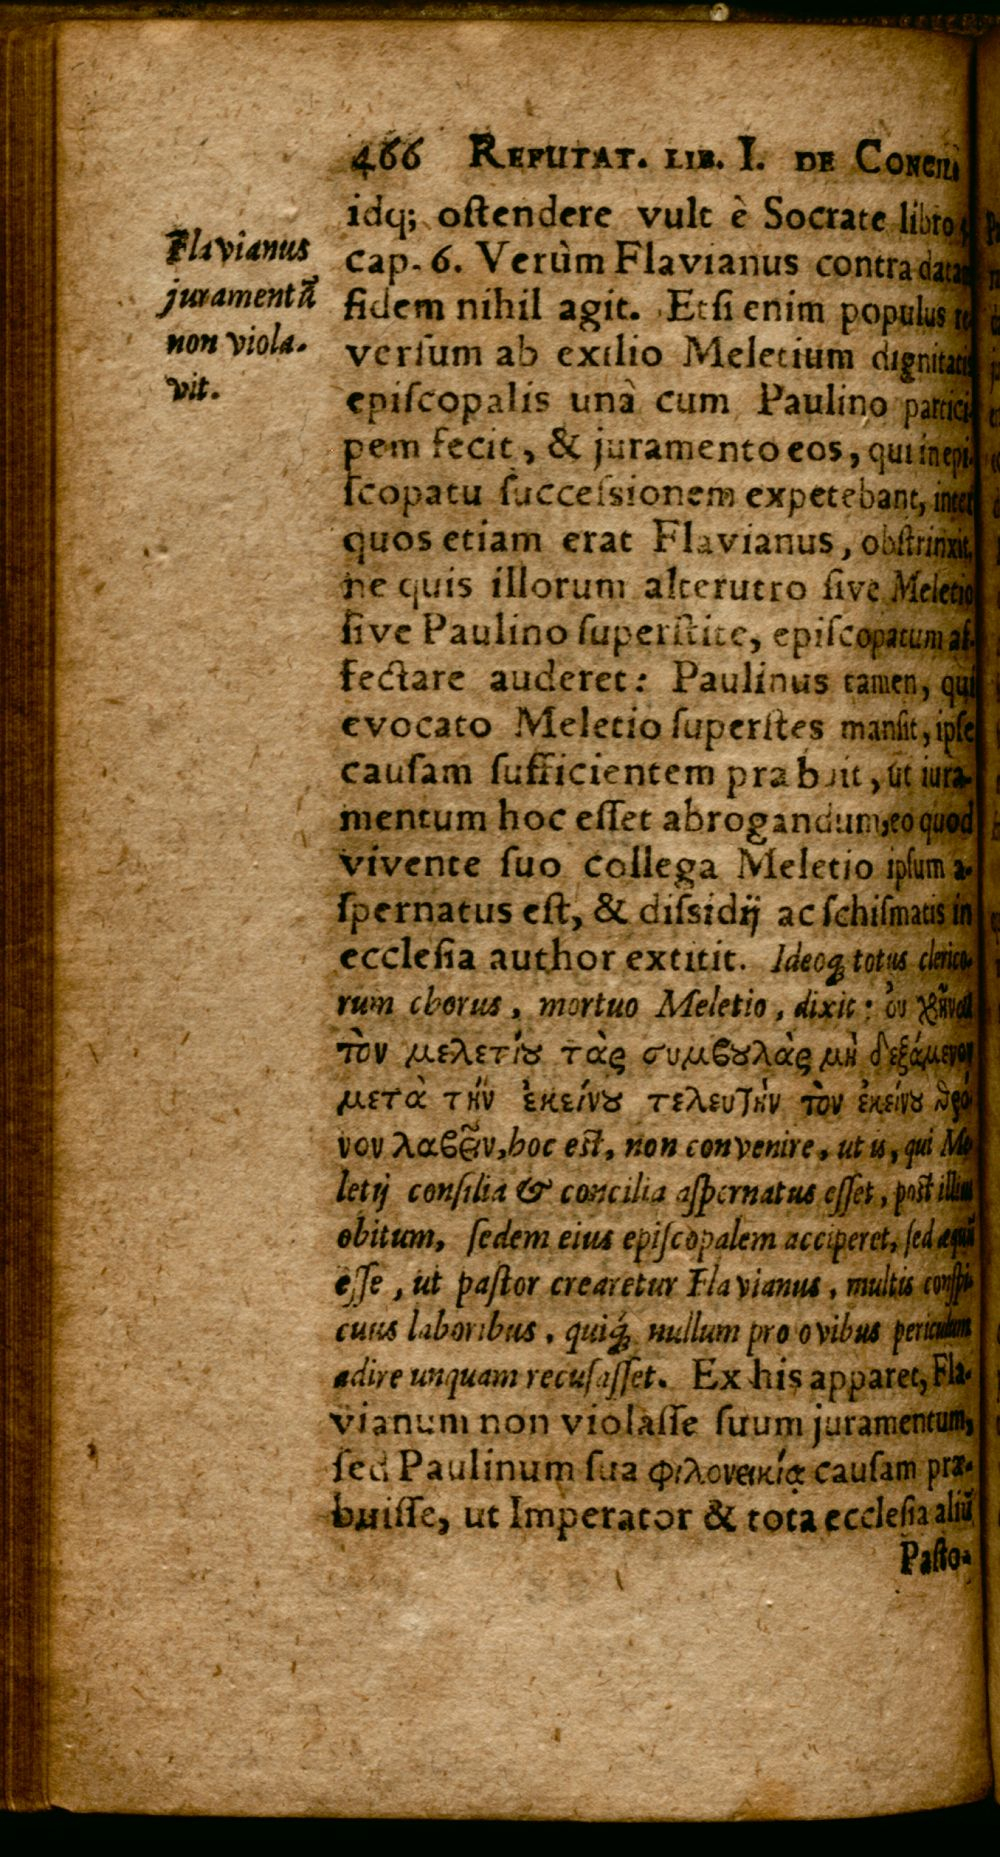 466 REFUTAT. LIB. I. DE CONCILI
Flavianus
juramentũ
non viola-
vit.
idq; oſtendere vult è Socrate libro
cap. 6. Verùm Flavianus contra datam
fidem nihil agit. Etſi enim populus re
verſum ab exilio Meletium dignitatis
epiſcopalis unà cum Paulino partici-
pem fecit, & juramento eos, qui in epi-
ſcopatu ſucceſsionem expetebant, inter
quos etiam erat Flavianus, obſtrinxit,
ne quis illorum alterutro ſive Meletio
ſive Paulino ſuperſtite, epiſcopatum af-
fectare auderet: Paulinus tamen, qui
evocato Meletio ſuperſtes manſit, ipſe
cauſam ſufficientem præbuit, ut iura-
mentum hoc eſſet abrogandum, eo quod
vivente ſuo collega Meletio ipſum a-
ſpernatus eſt, & diſsidij ac ſchiſmatis in
eccleſia author extitit. Ideoq́ totus clerico-
rum chorus, mortuo Meletio, dixit: ὀυ χῆναι
τὸν μελετίȣ τὰς συμβȣλὰς μὴ δεξάμενον
μετὰ τὴν ἐκείνȣ τελευτὴν τὸν ἐκείνȣ θρό-
νον λαβεῖν, hoc eſt, non convenire, ut is, qui Me
letij conſilia & concilia aſpernatus eſſet, poſt illius
obitum, ſedem eius epiſcopalem acciperet, ſed æquũ
eſſe, ut paſtor crearetur Flavianus, multis conſpi-
cuus laboribus, quiq́ nullum pro ovibus periculum
adire unquam recuſaſſet. Ex his apparet, Fla-
vianum non violaſſe ſuum juramentum,
ſed Paulinum ſua φιλονεικίᾳ cauſam præ-
buiſſe, ut Imperator & tota eccleſia aliũ
Paſto-